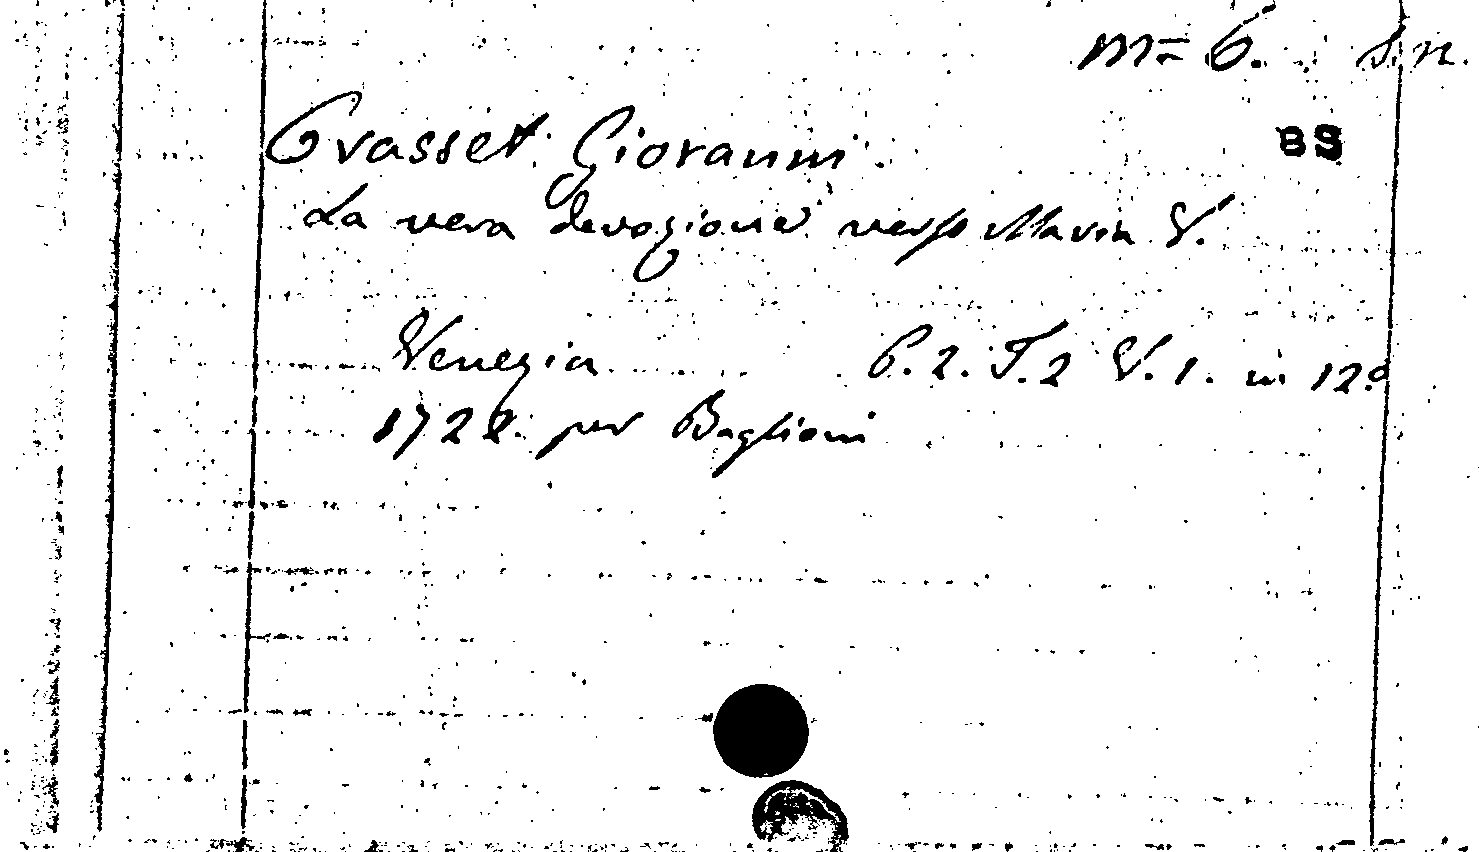 m= 6. S. n.
Crasset Giovanni.
BS
La vera devozione verso Maria V.
Venezia P. 2. T. 2 V. 1. in 12º
1722. per Baglioni